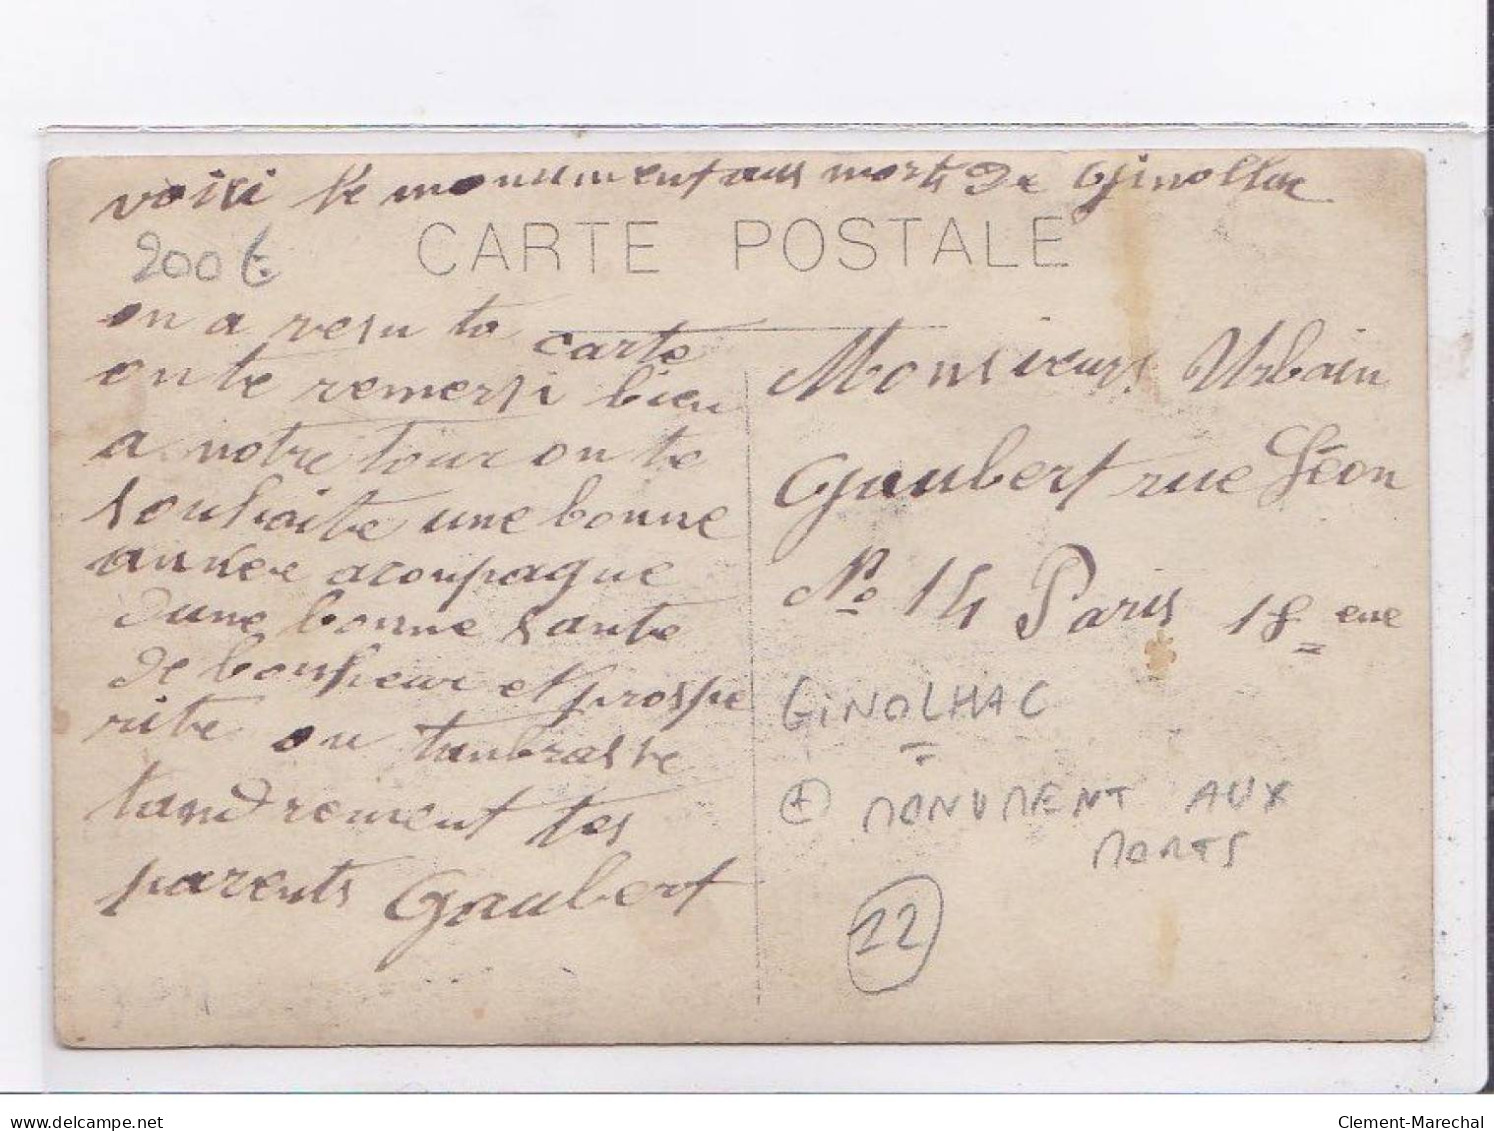 voisi le monument aus morts de Ginollac
200 €
CARTE POSTALE
on a resu ta carte
on te remersi bien
a notre tour on te
souhaite une bonne
année acoupagne
dune bonne sante
de bonheur et prospe
rite on tanbrasse
tandrement tes
parents Gaubert
Monsieurs Urbain
Gaubert rue Léon
No 14 Paris 18 eme
GINOLHAC
+ MONUMENT AUX
MORTS
22
delcampe.net
Clement-Marechal